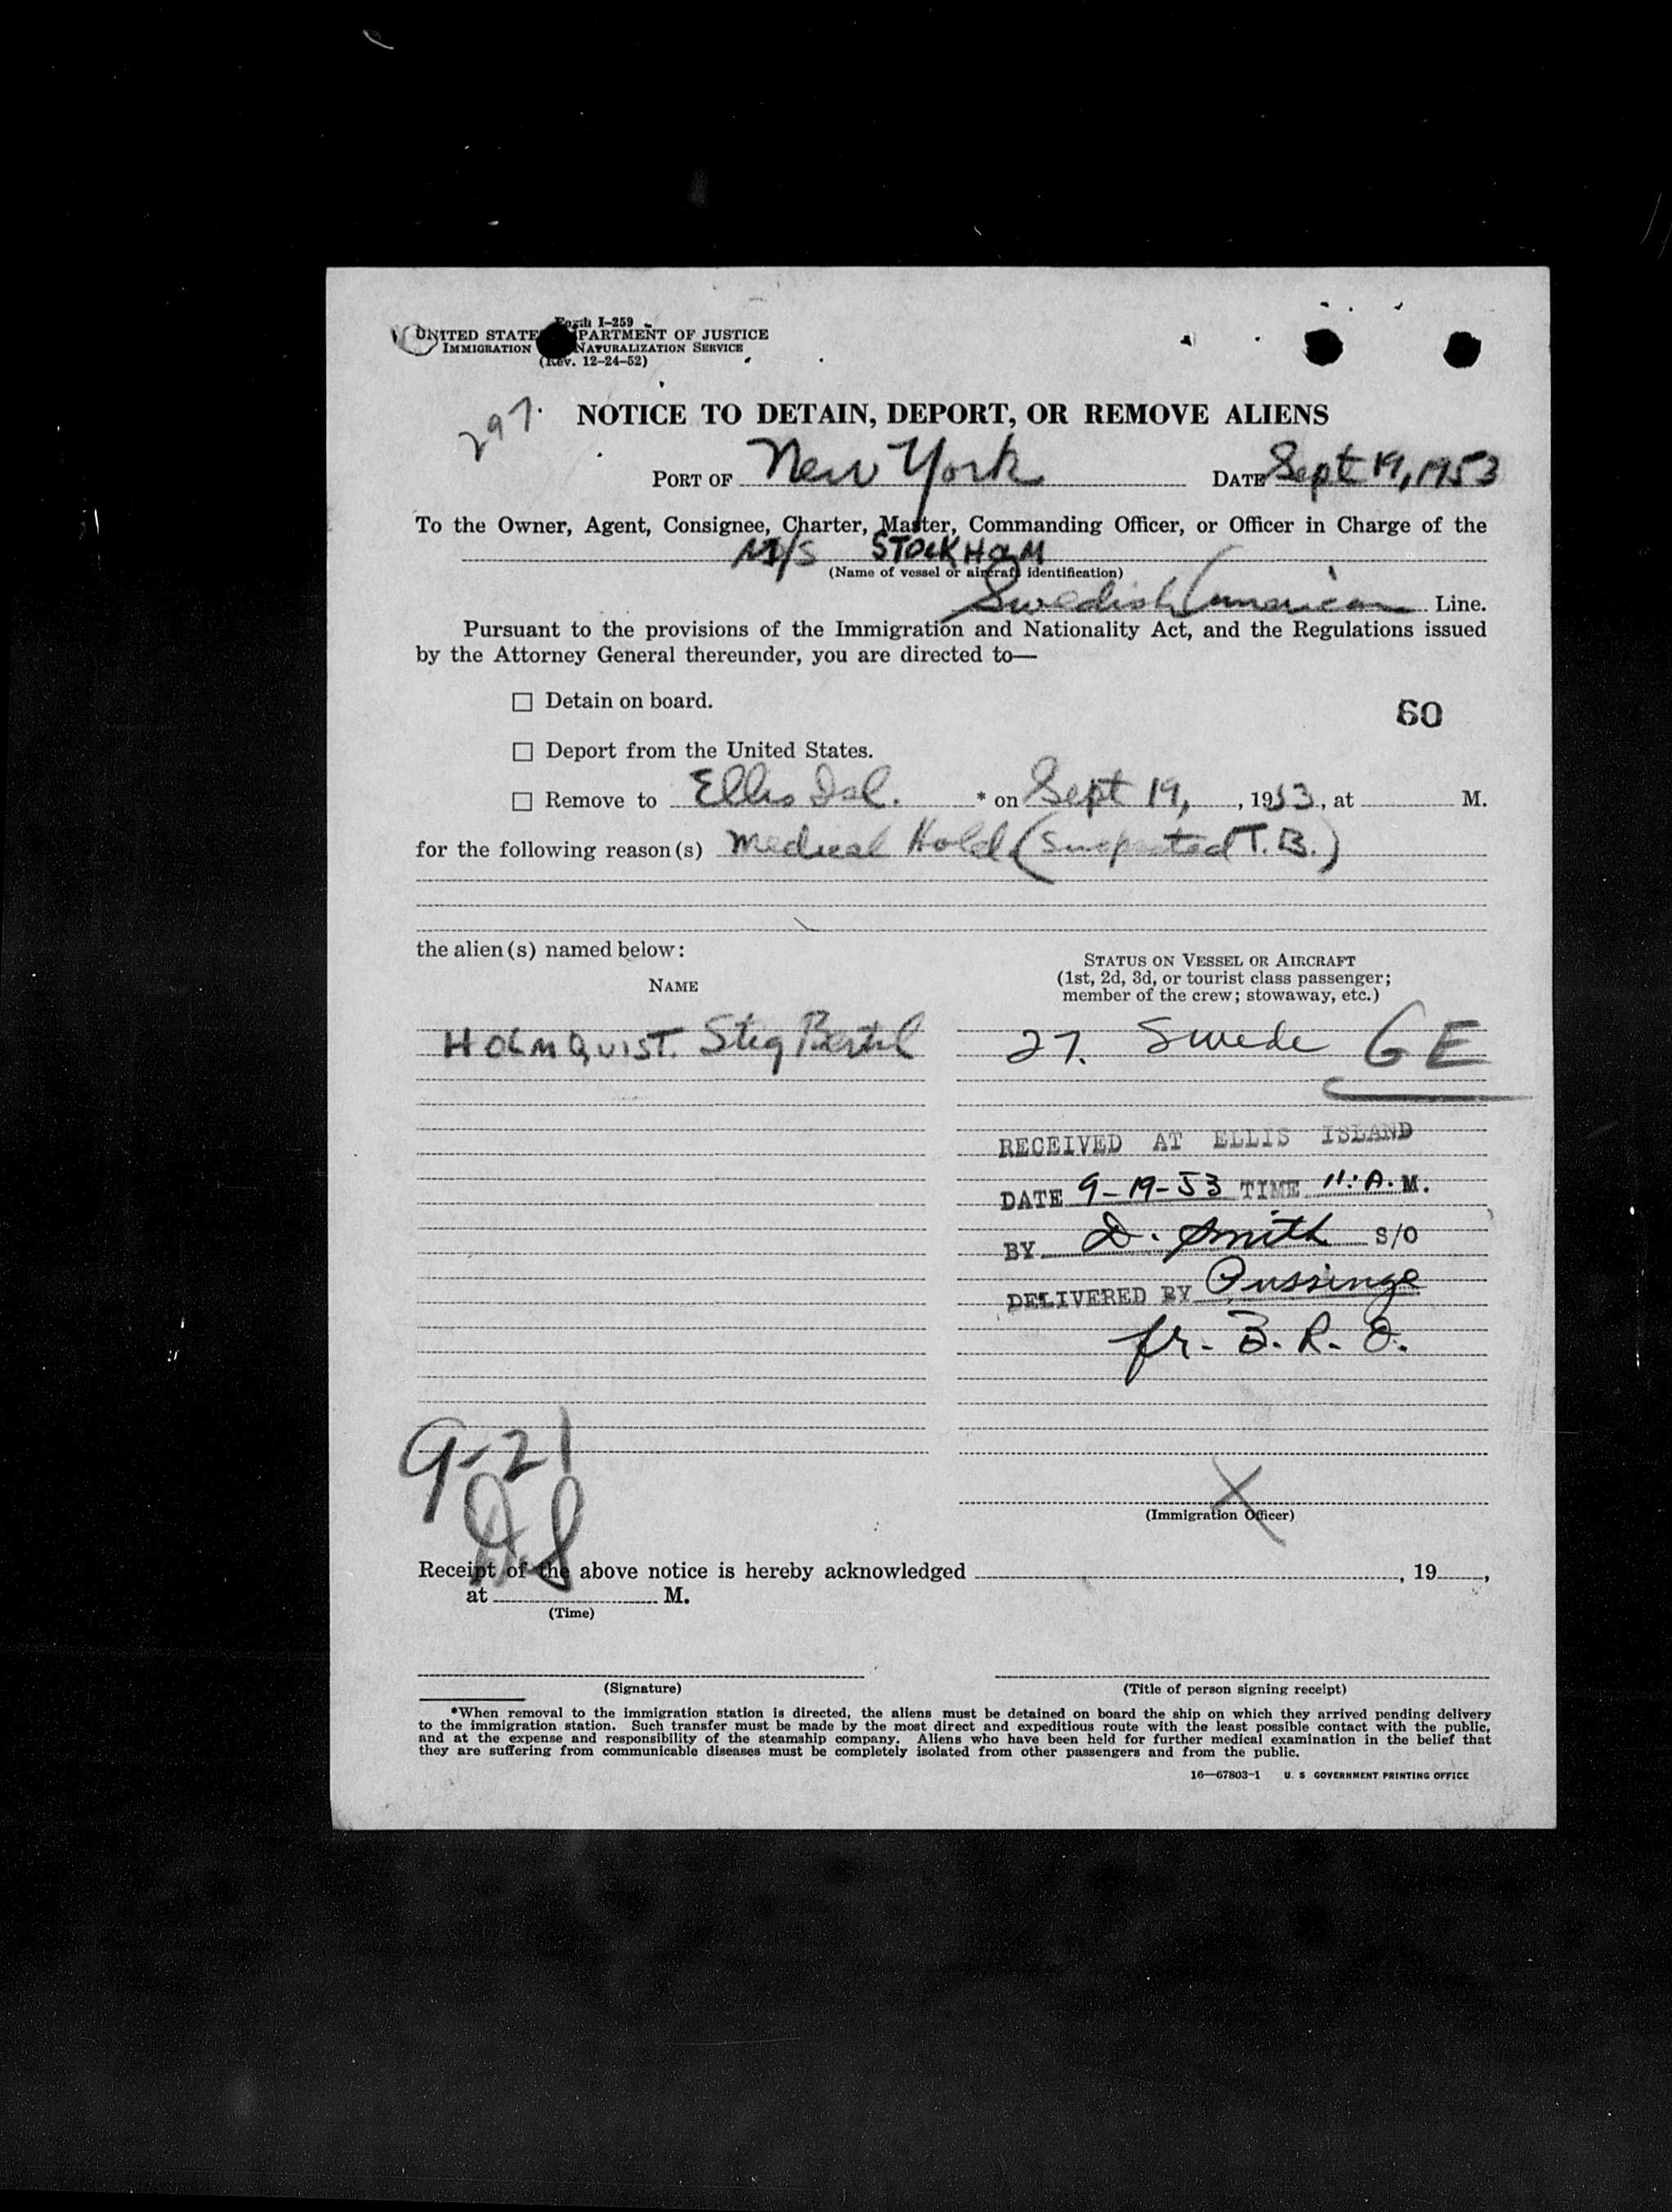 Form I-259
UNITED STATES DEPARTMENT OF JUSTICE
IMMIGRATION NATURALIZATION SERVICE
(Rev. 12-24-52)
297.
NOTICE TO DETAIN, DEPORT, OR REMOVE ALIENS
PORT OF New York DATE Sept 19, 1953
To the Owner, Agent, Consignee, Charter, Master, Commanding Officer, or Officer in Charge of the
M/S STOCKHOLM
(Name of vessel or aircraft identification)
Swedish American Line.
Pursuant to the provisions of the Immigration and Nationality Act, and the Regulations issued
by the Attorney General thereunder, you are directed to—
☐ Detain on board.
60
☐ Deport from the United States.
☐ Remove to Ellis Isl. * on Sept 19, , 1953, at M.
for the following reason(s) Medical Hold (Suspected T.B.)
the alien(s) named below:
NAME
STATUS ON VESSEL OR AIRCRAFT
(1st, 2d, 3d, or tourist class passenger;
member of the crew; stowaway, etc.)
HOLMQUIST. Stig Bertil 27. Swede GE
RECEIVED AT ELLIS ISLAND
DATE 9-19-53 TIME 11: A.M.
BY D. Smith S/O
DELIVERED BY
fr. B. R. O.
9-21
X
(Immigration Officer)
Receipt of the above notice is hereby acknowledged , 19 ,
at M.
(Time)
(Signature) (Title of person signing receipt)
*When removal to the immigration station is directed, the aliens must be detained on board the ship on which they arrived pending delivery
to the immigration station. Such transfer must be made by the most direct and expeditious route with the least possible contact with the public,
and at the expense and responsibility of the steamship company. Aliens who have been held for further medical examination in the belief that
they are suffering from communicable diseases must be completely isolated from other passengers and from the public.
16—67803-1 U. S GOVERNMENT PRINTING OFFICE